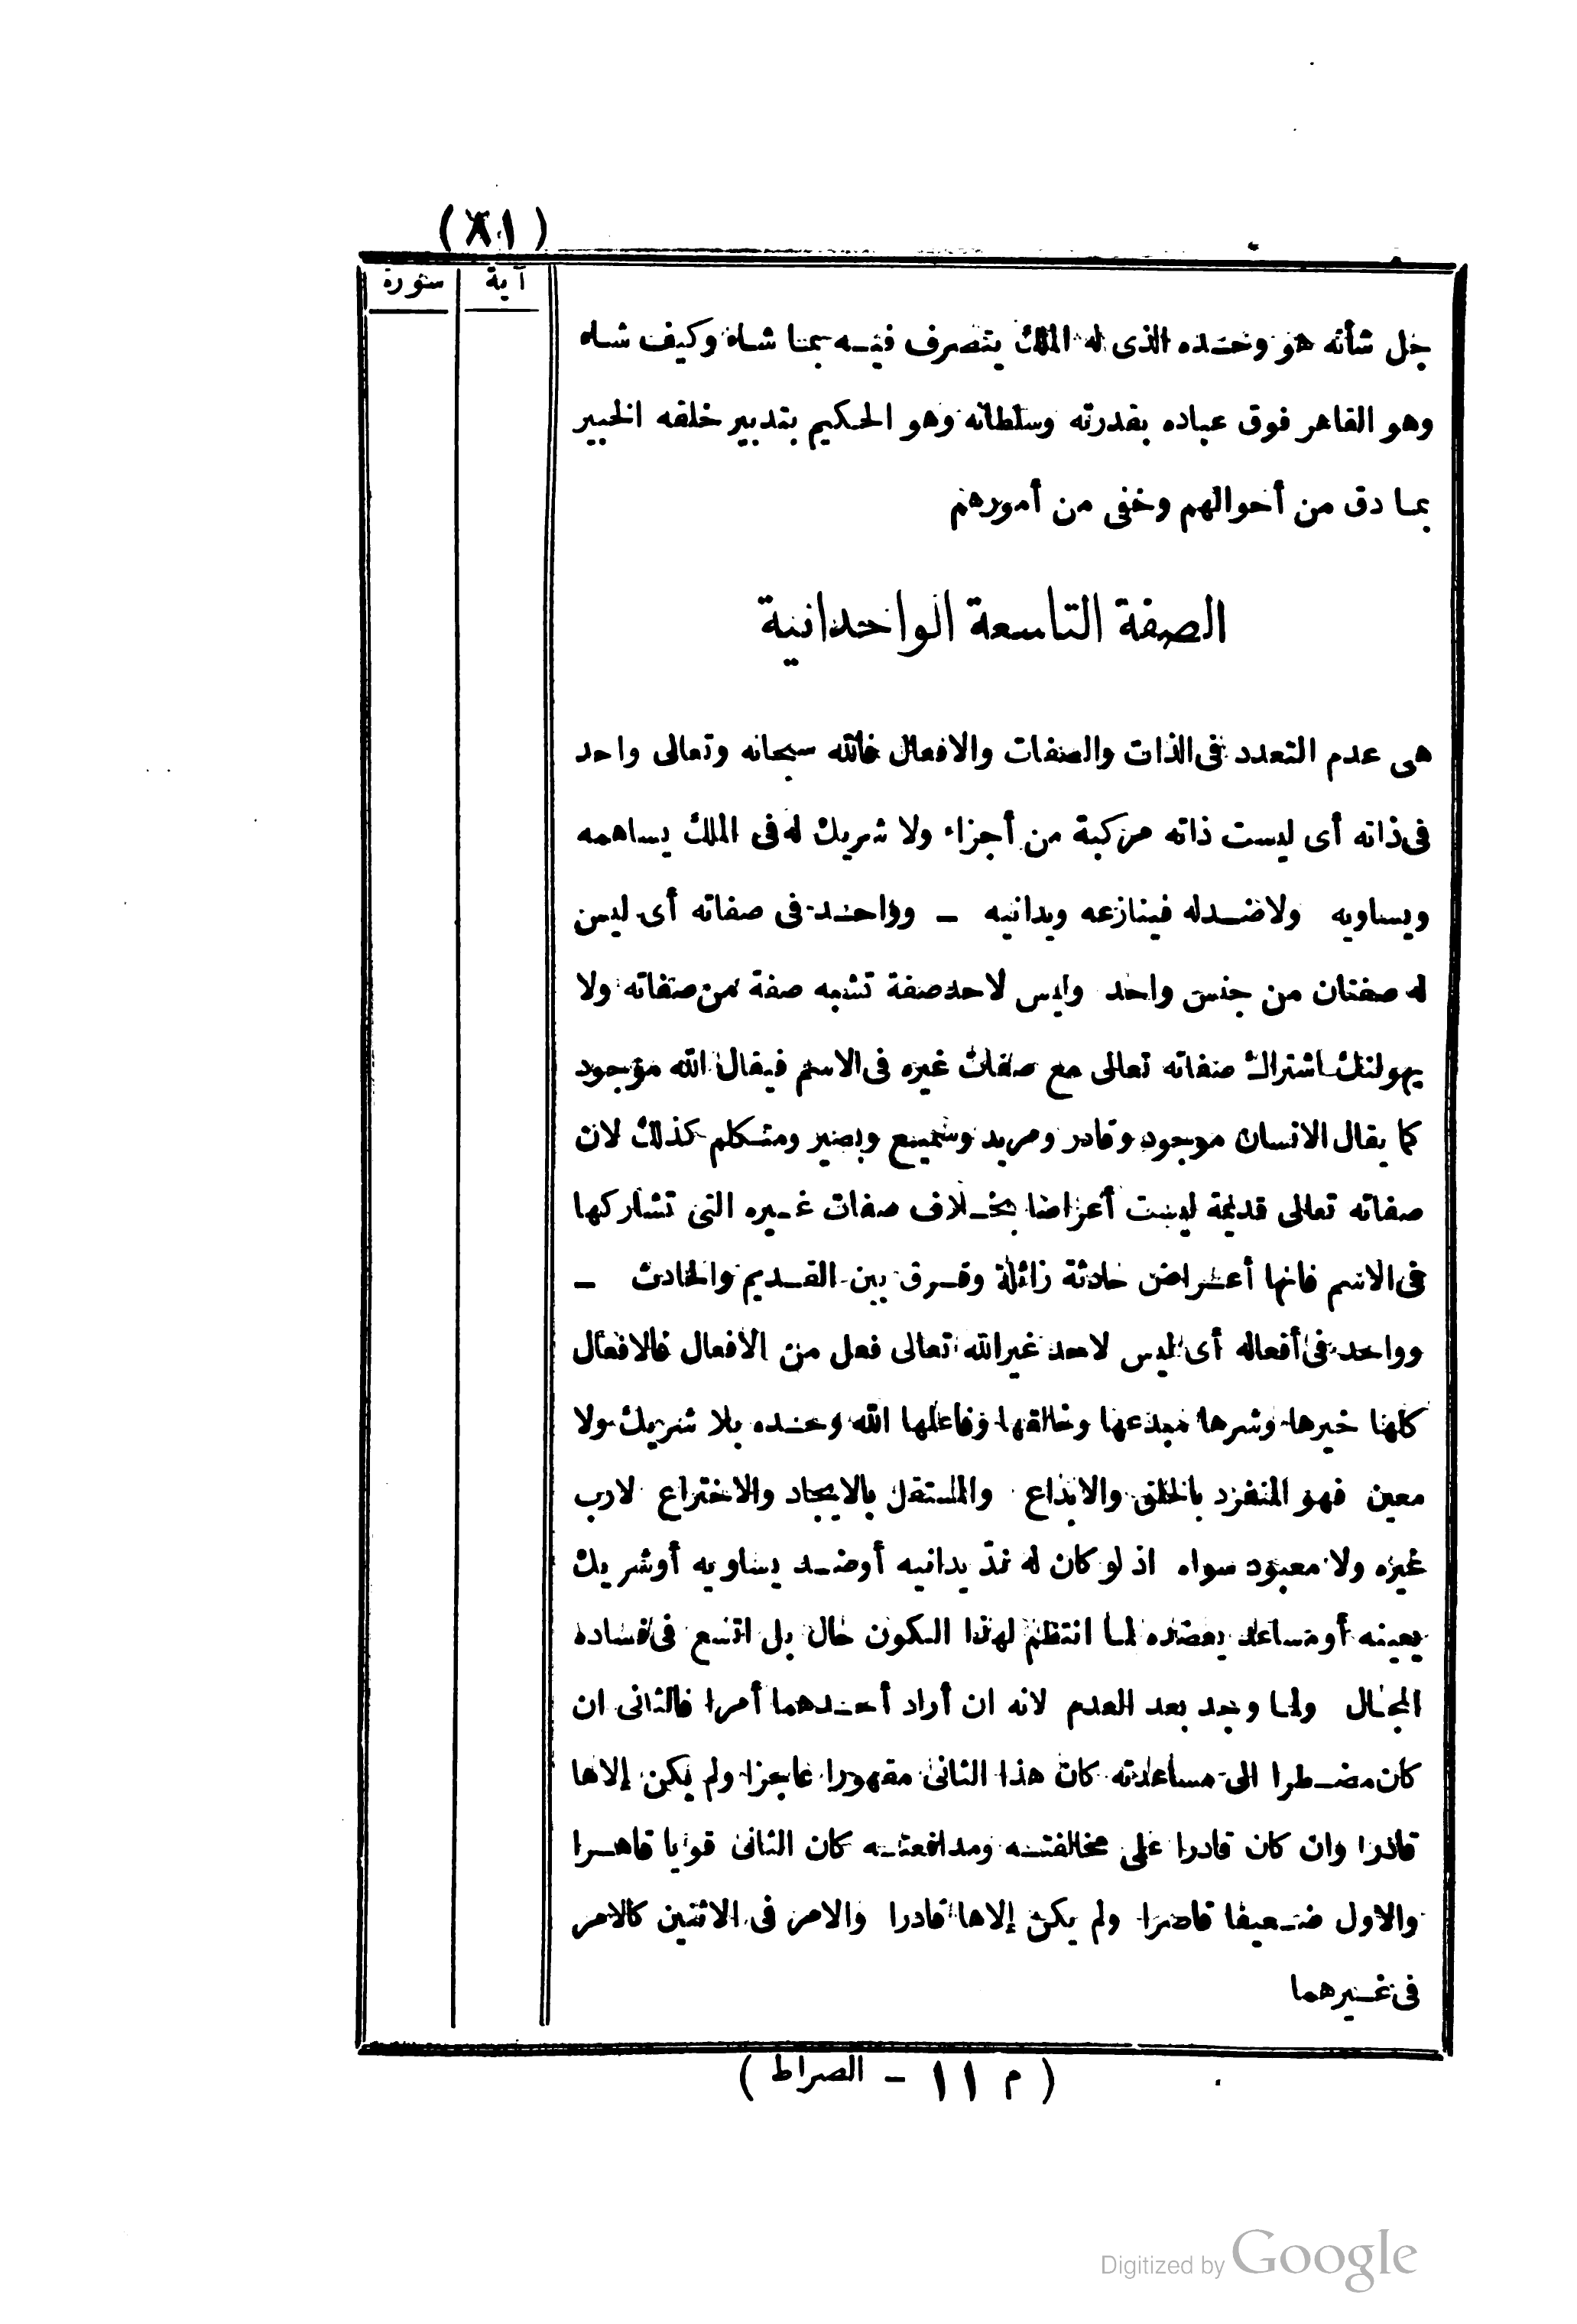 (٨١)
آية سورة
جل شأنه هو وحده الذى له الملك يتصرف فيه بما شاء وكيف شاء
وهو القاهر فوق عباده بقدرته وسلطانه وهو الحكيم بتدبير خلقه الخبير
بما دق من أحوالهم وخفى من أمورهم
الصفة التاسعة الواحدانية
هى عدم التعدد فى الذات والصفات والافعال فالله سبحانه وتعالى واحد
فى ذاته أى ليست ذاته مركبة من أجزاء ولا شريك له فى الملك يساهمه
ويساويه ولا ضد له فينازعه ويدانيه ـ وواحد فى صفاته أى ليس
له صفتان من جنس واحد وليس لاحد صفة تشبه صفة من صفاته ولا
يهولنك اشتراك صفاته تعالى مع صفات غيره فى الاسم فيقال الله موجود
كما يقال الانسان موجود وقادر ومريد وسميع وبصير ومتكلم كذلك لان
صفاته تعالى قديمة ليست أعراضا بخلاف صفات غيره التى تشاركها
فى الاسم فانها أعراض حادثة زائلة وفرق بين القديم والحادث ـ
وواحد فى أفعاله أى ليس لاحد غير الله تعالى فعل من الافعال فالافعال
كلها خيرها وشرها مبدعها وخالقها وفاعلها الله وحده بلا شريك ولا
معين فهو المنفرد بالخلق والابداع والمستقل بالايجاد والاختراع لارب
غيره ولا معبود سواه اذ لو كان له ندّ يدانيه أوضد يساويه أوشريك
يعينه أومساعد يعضده لما انتظم لهذا الكون حال بل اتسع فى فساده
المجال ولما وجد بعد العدم لانه ان أراد أحدهما أمرا فالثانى ان
كان مضطرا الى مساعدته كان هذا الثانى مقهورا عاجزا ولم يكن إلاها
قادرا وان كان قادرا على مخالفته ومدافعته كان الثانى قويا قاهرا
والاول ضعيفا قاصرا ولم يكن إلاها قادرا والامر فى الاثنين كالامر
فى غيرهما
(م ١١ ـ الصراط)
Digitized by Google